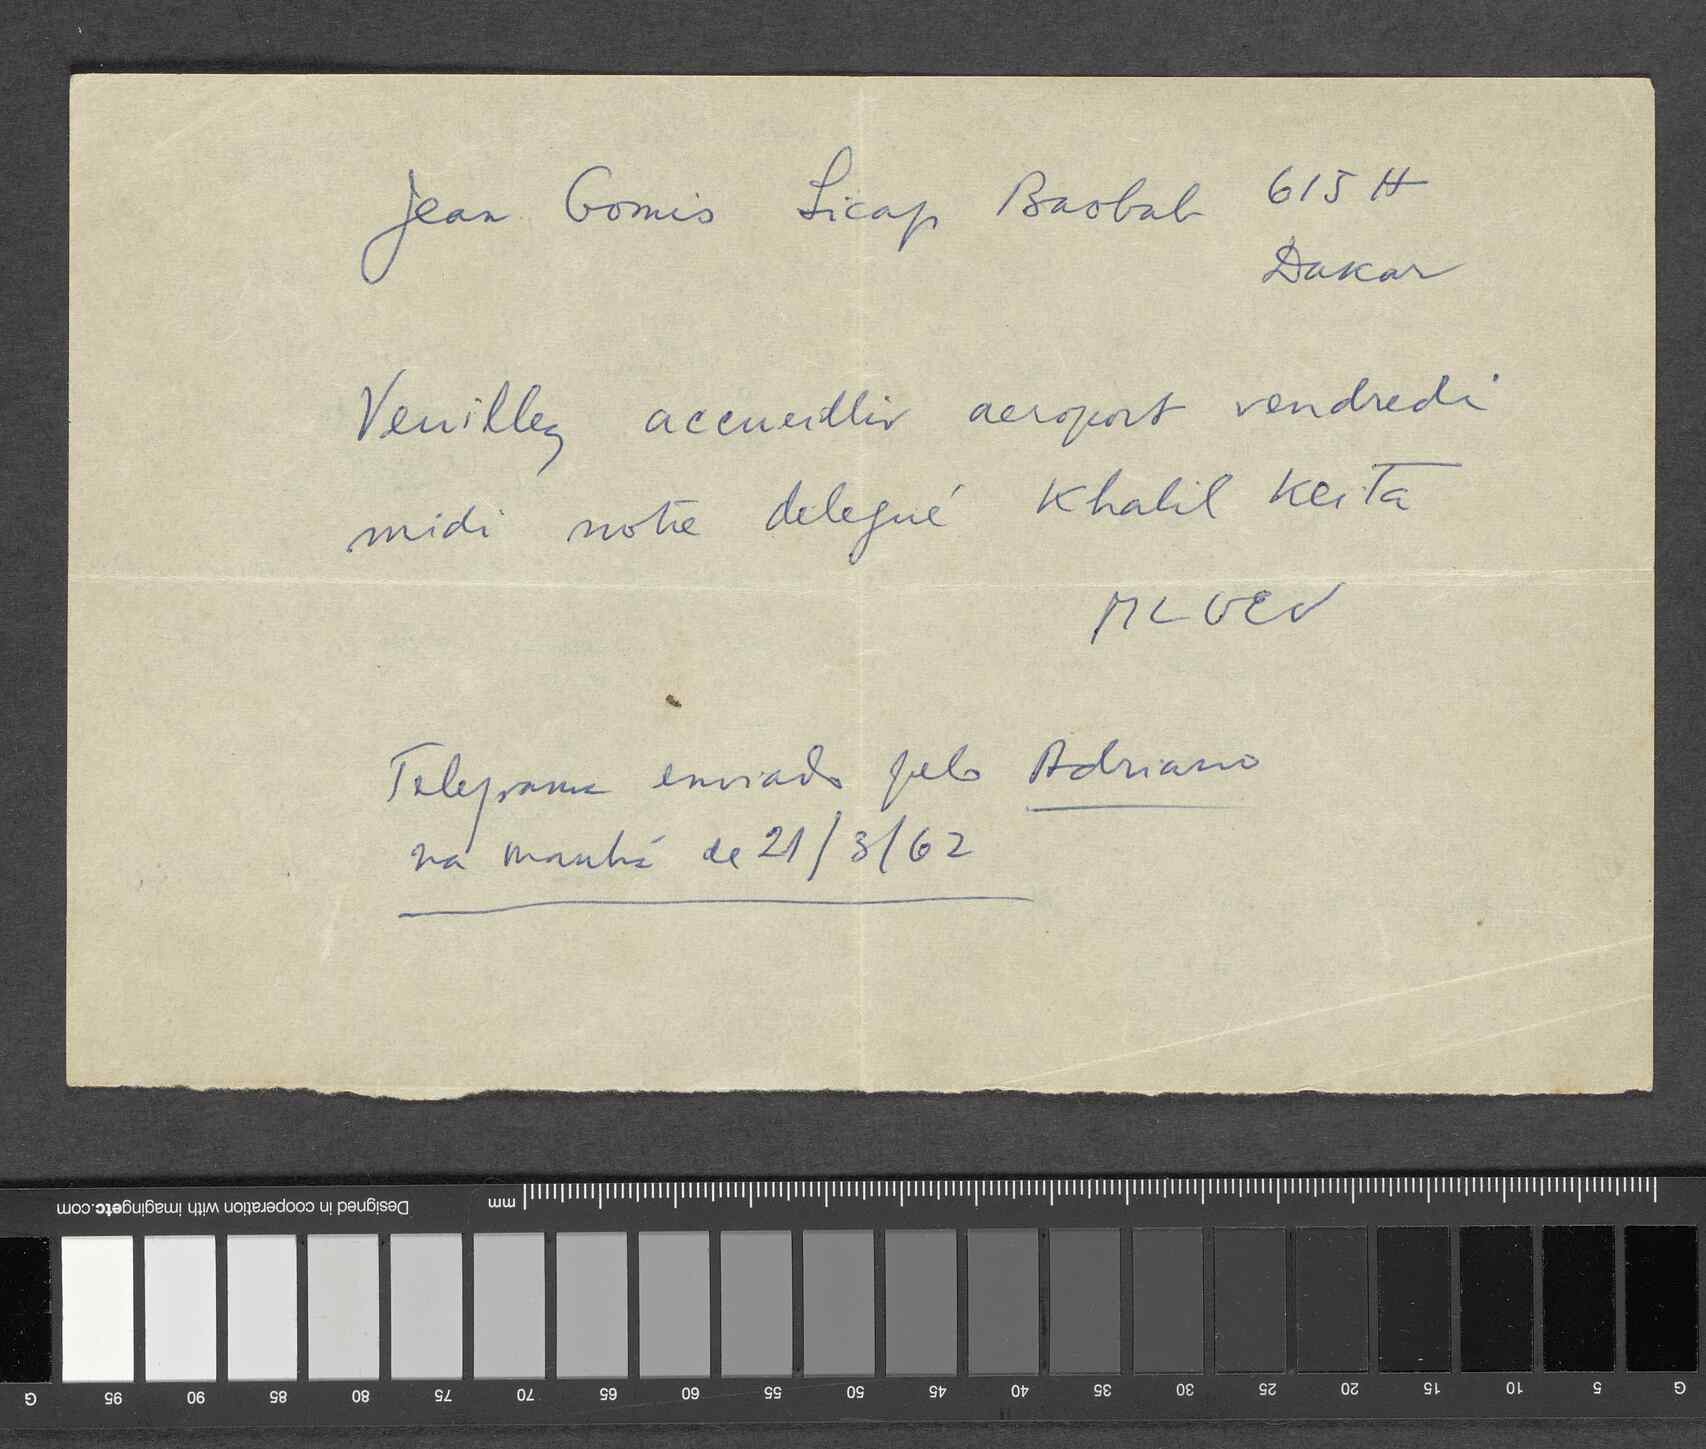 Jean Gomis Sicap Baobab 615 H
Dakar
Veuillez accueillir aeroport vendredi
midi notre delegué Khalil Keita
MLGCV
Telegrama enviado pelo Adriano
na manhã de 21/3/62
Designed in cooperation with imagingetc.com
mm
G 95 90 85 80 75 70 65 60 55 50 45 40 35 30 25 20 15 10 5 G